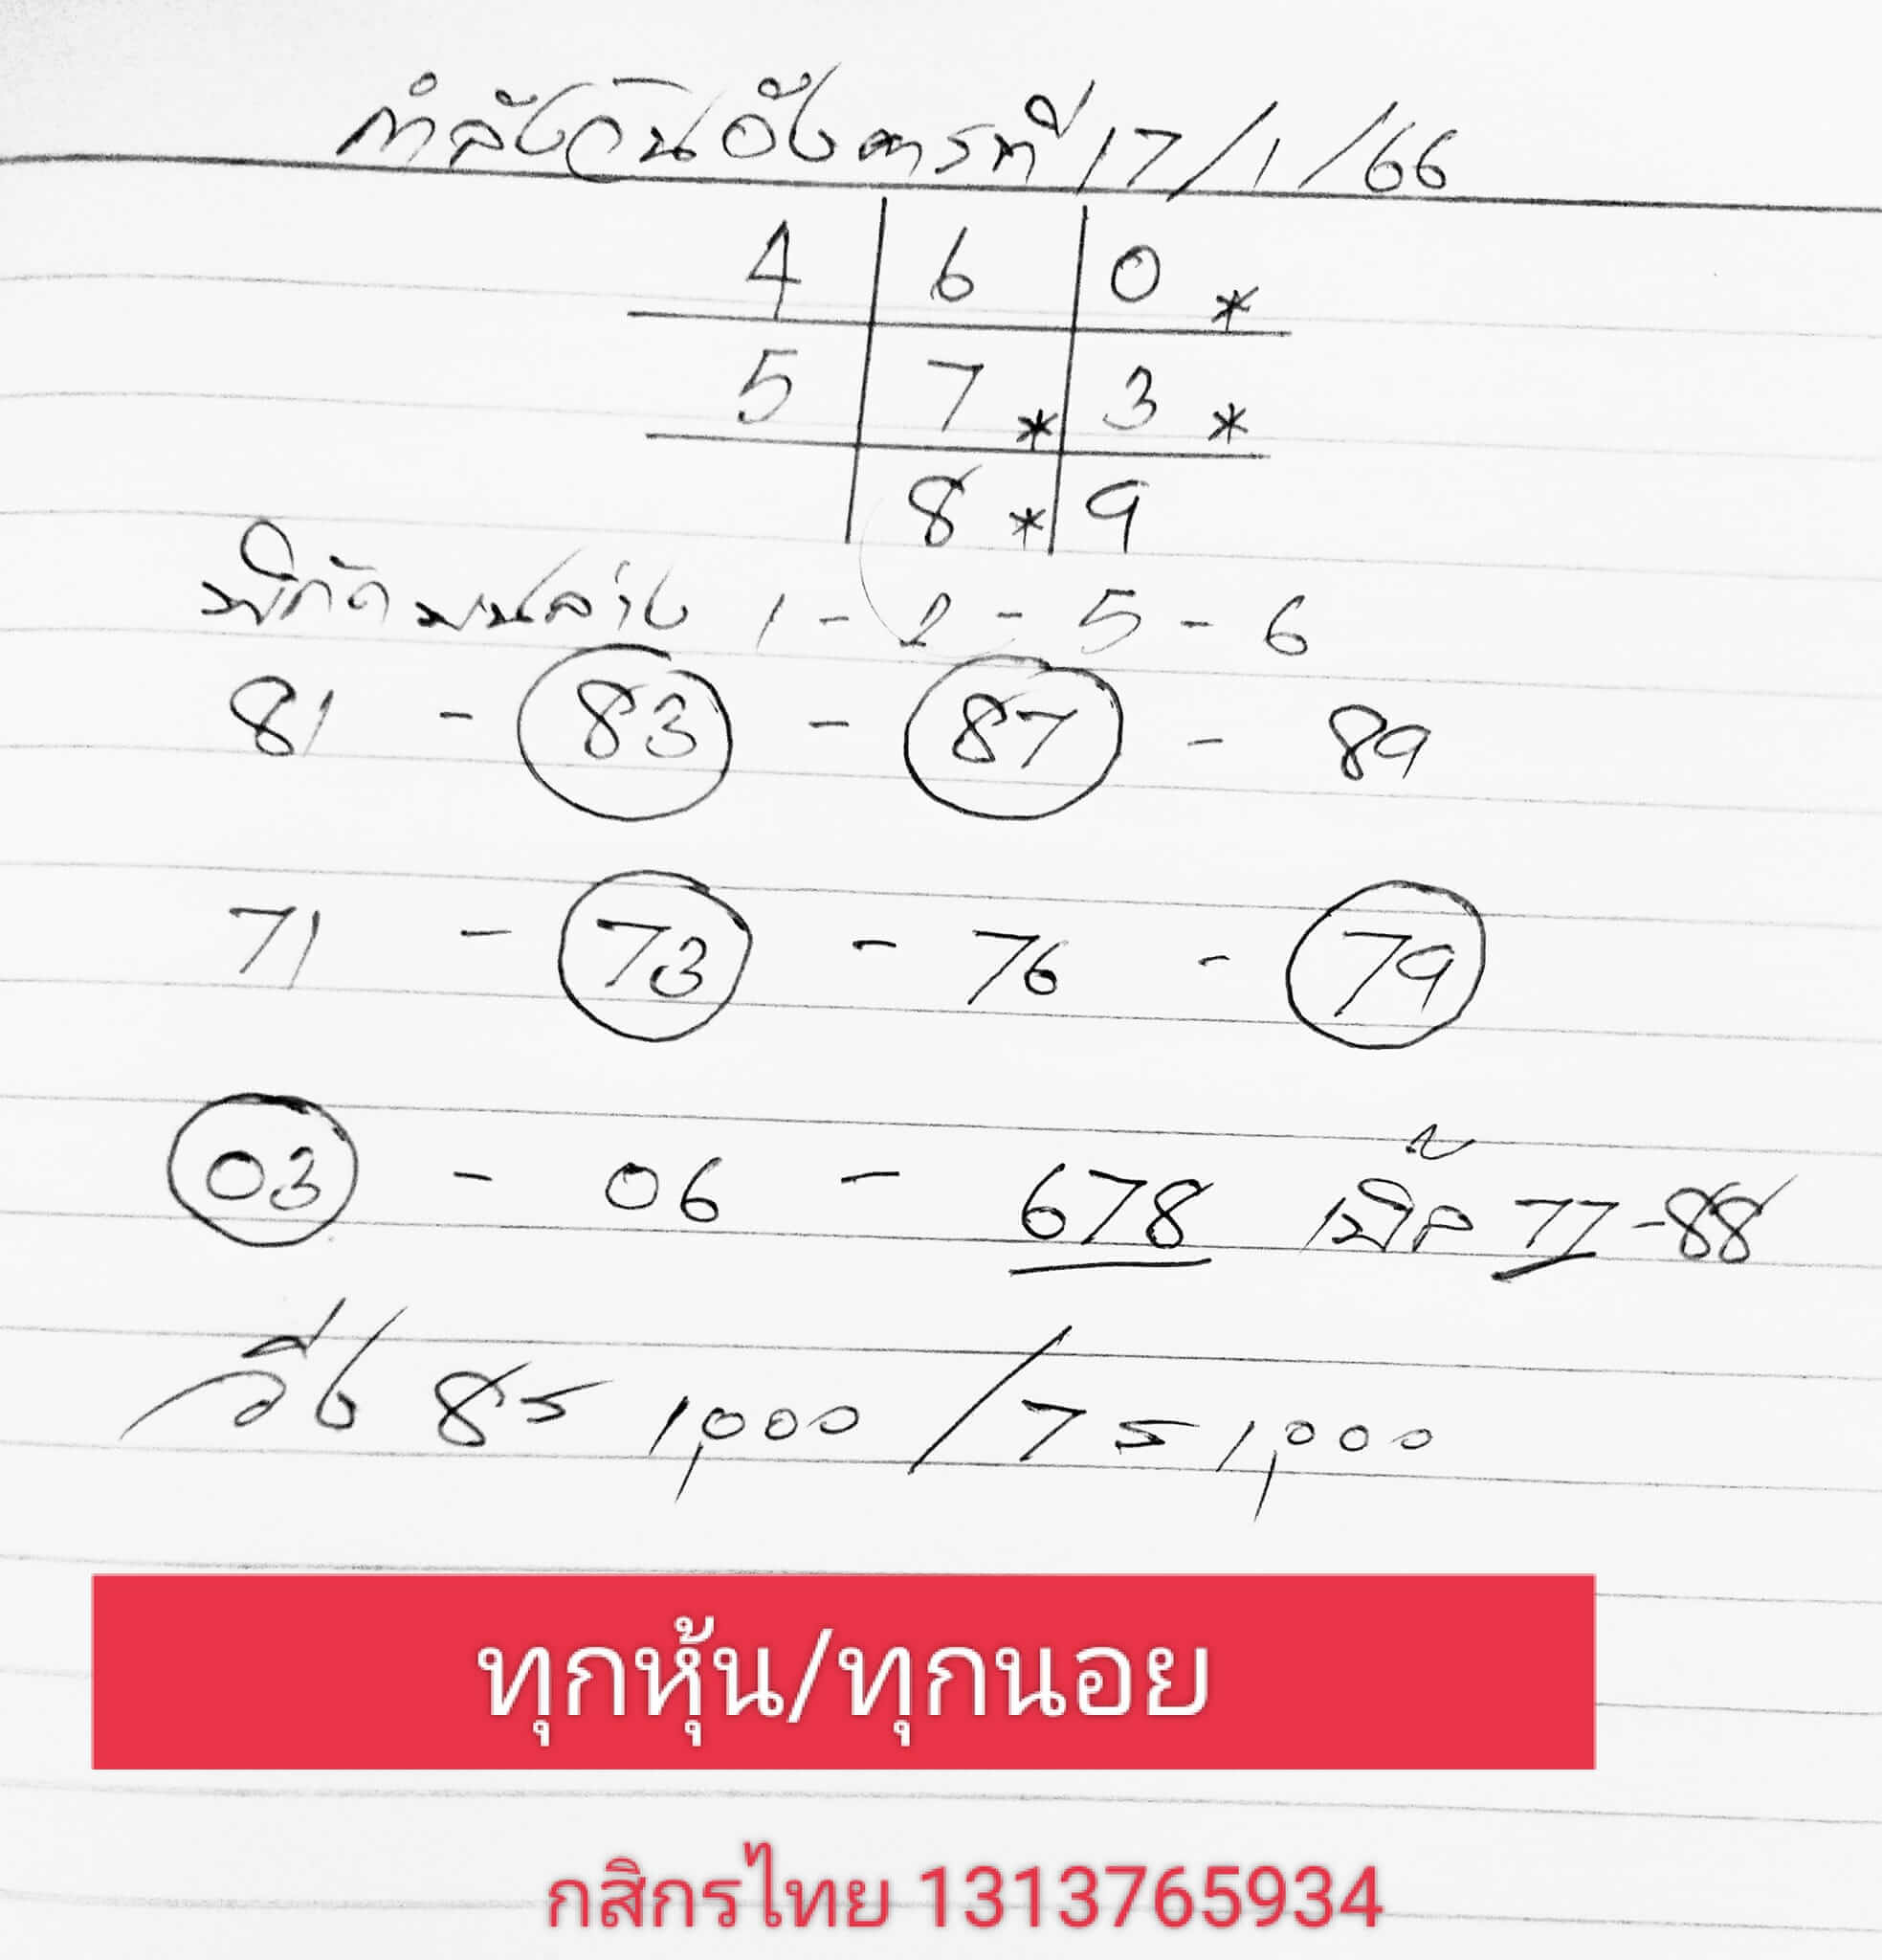 กำลังวันอังคารที่ 17/1/66
4 6 0 *
5 7 * 3 *
8 * 9
พิกัดบนล่าง 1 - 2 - 5 - 6
81 - 83 - 87 - 89
71 - 73 - 76 - 79
03 - 06 - 678 เบิ้ล 77 - 88
วิ่ง 8 = 1,000 / 7 = 1,000
ทุกหุ้น/ทุกนอย
กสิกรไทย 1313765934